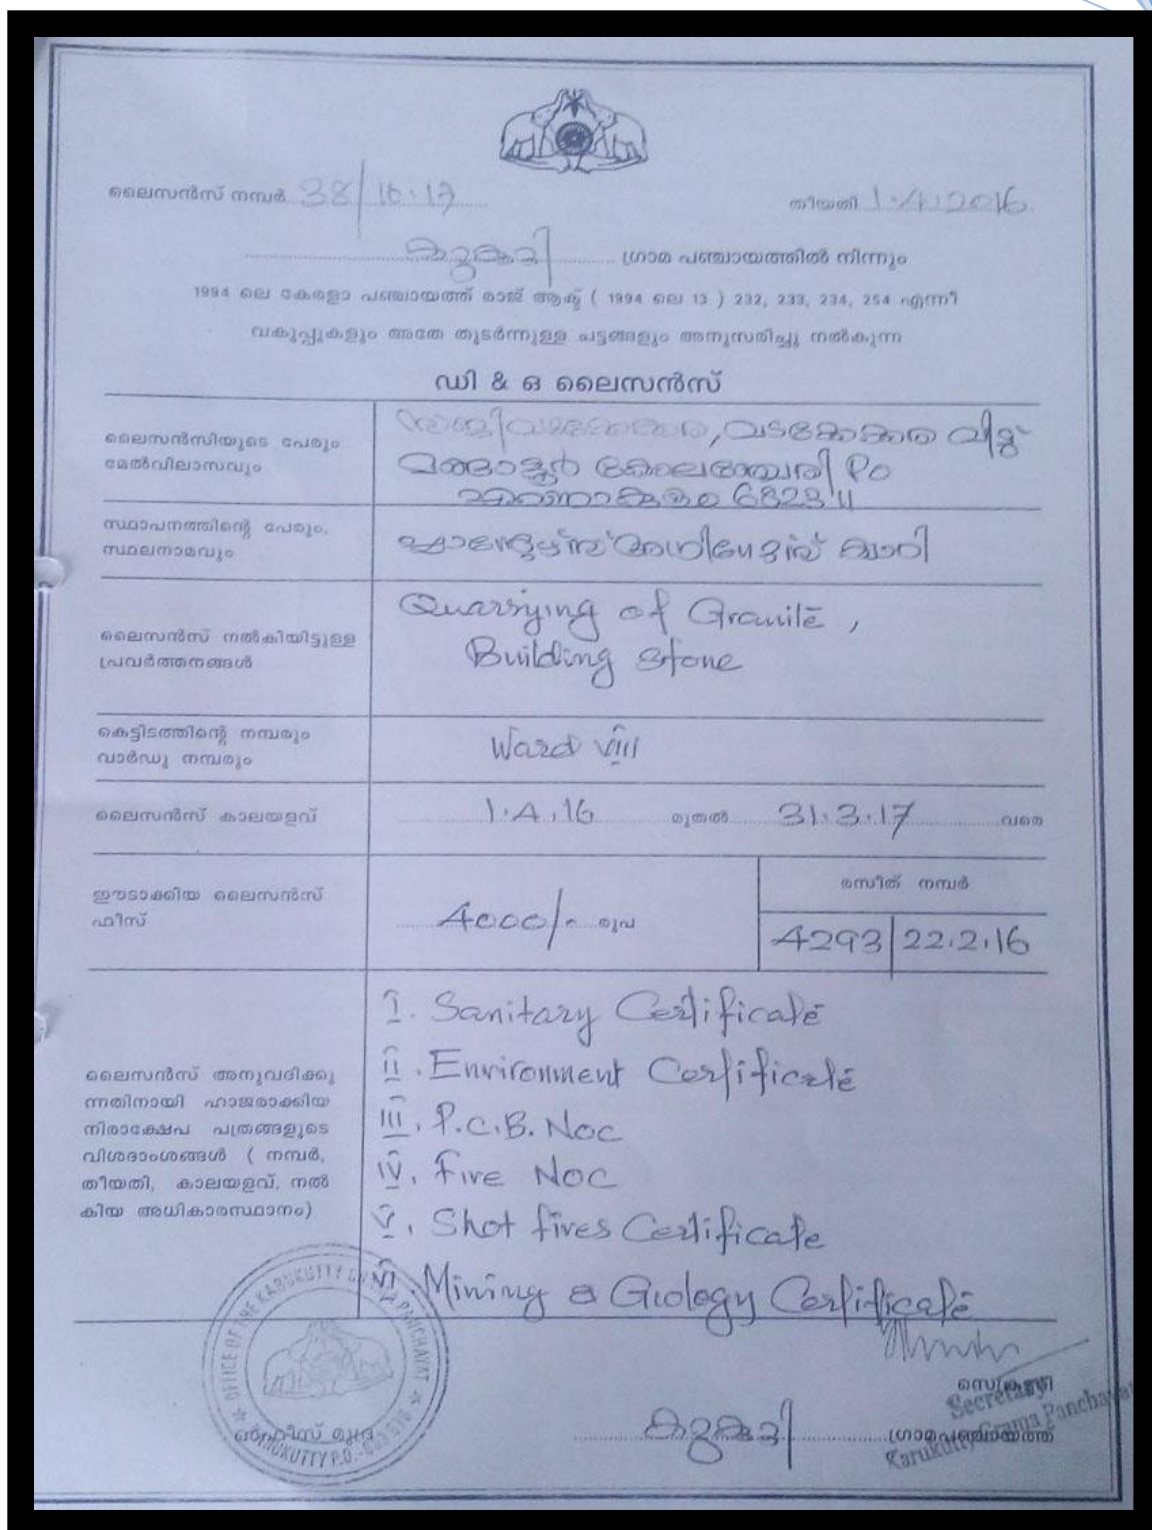 ലൈസൻസ് നമ്പർ 38/16-17
തീയതി 1.4.2016
കറുകുറ്റി ഗ്രാമ പഞ്ചായത്തിൽ നിന്നും
1994 ലെ കേരളാ പഞ്ചായത്ത് രാജ് ആക്ട് ( 1994 ലെ 13 ) 232, 233, 234, 254 എന്നീ
വകുപ്പുകളും അതേ തുടർന്നുള്ള ചട്ടങ്ങളും അനുസരിച്ചു നൽകുന്ന
ഡി & ഒ ലൈസൻസ്
ലൈസൻസിയുടെ പേരും
മേൽവിലാസവും
വടക്കേക്കര വീട്
കോലഞ്ചേരി PO
എറണാകുളം 682311
സ്ഥാപനത്തിന്റെ പേരും,
സ്ഥലനാമവും
ക്വാറി
ലൈസൻസ് നൽകിയിട്ടുള്ള
പ്രവർത്തനങ്ങൾ
Quarrying of Granite,
Building stone
കെട്ടിടത്തിന്റെ നമ്പരും
വാർഡു നമ്പരും
Ward VIII
ലൈസൻസ് കാലയളവ്
1.4.16 മുതൽ 31.3.17 വരെ
ഈടാക്കിയ ലൈസൻസ്
ഫീസ്
4000/- രൂപ
രസീത് നമ്പർ
4293 22.2.16
ലൈസൻസ് അനുവദിക്കു
ന്നതിനായി ഹാജരാക്കിയ
നിരാക്ഷേപ പത്രങ്ങളുടെ
വിശദാംശങ്ങൾ ( നമ്പർ,
തീയതി, കാലയളവ്, നൽ
കിയ അധികാരസ്ഥാനം)
I. Sanitary Certificate
II. Environment Certificate
III. P.C.B. Noc
IV. Fire NOC
V. Shot fires Certificate
VI Mining & Geology Certificate
OFFICE OF THE KARUKUTTY GRAMA PANCHAYAT
KARUKUTTY P.O.-683 576
ഓഫീസ് മുദ്ര
സെക്രട്ടറി
Secretary
കറുകുറ്റി ഗ്രാമപഞ്ചായത്ത്
Karukutty Grama Panchayat